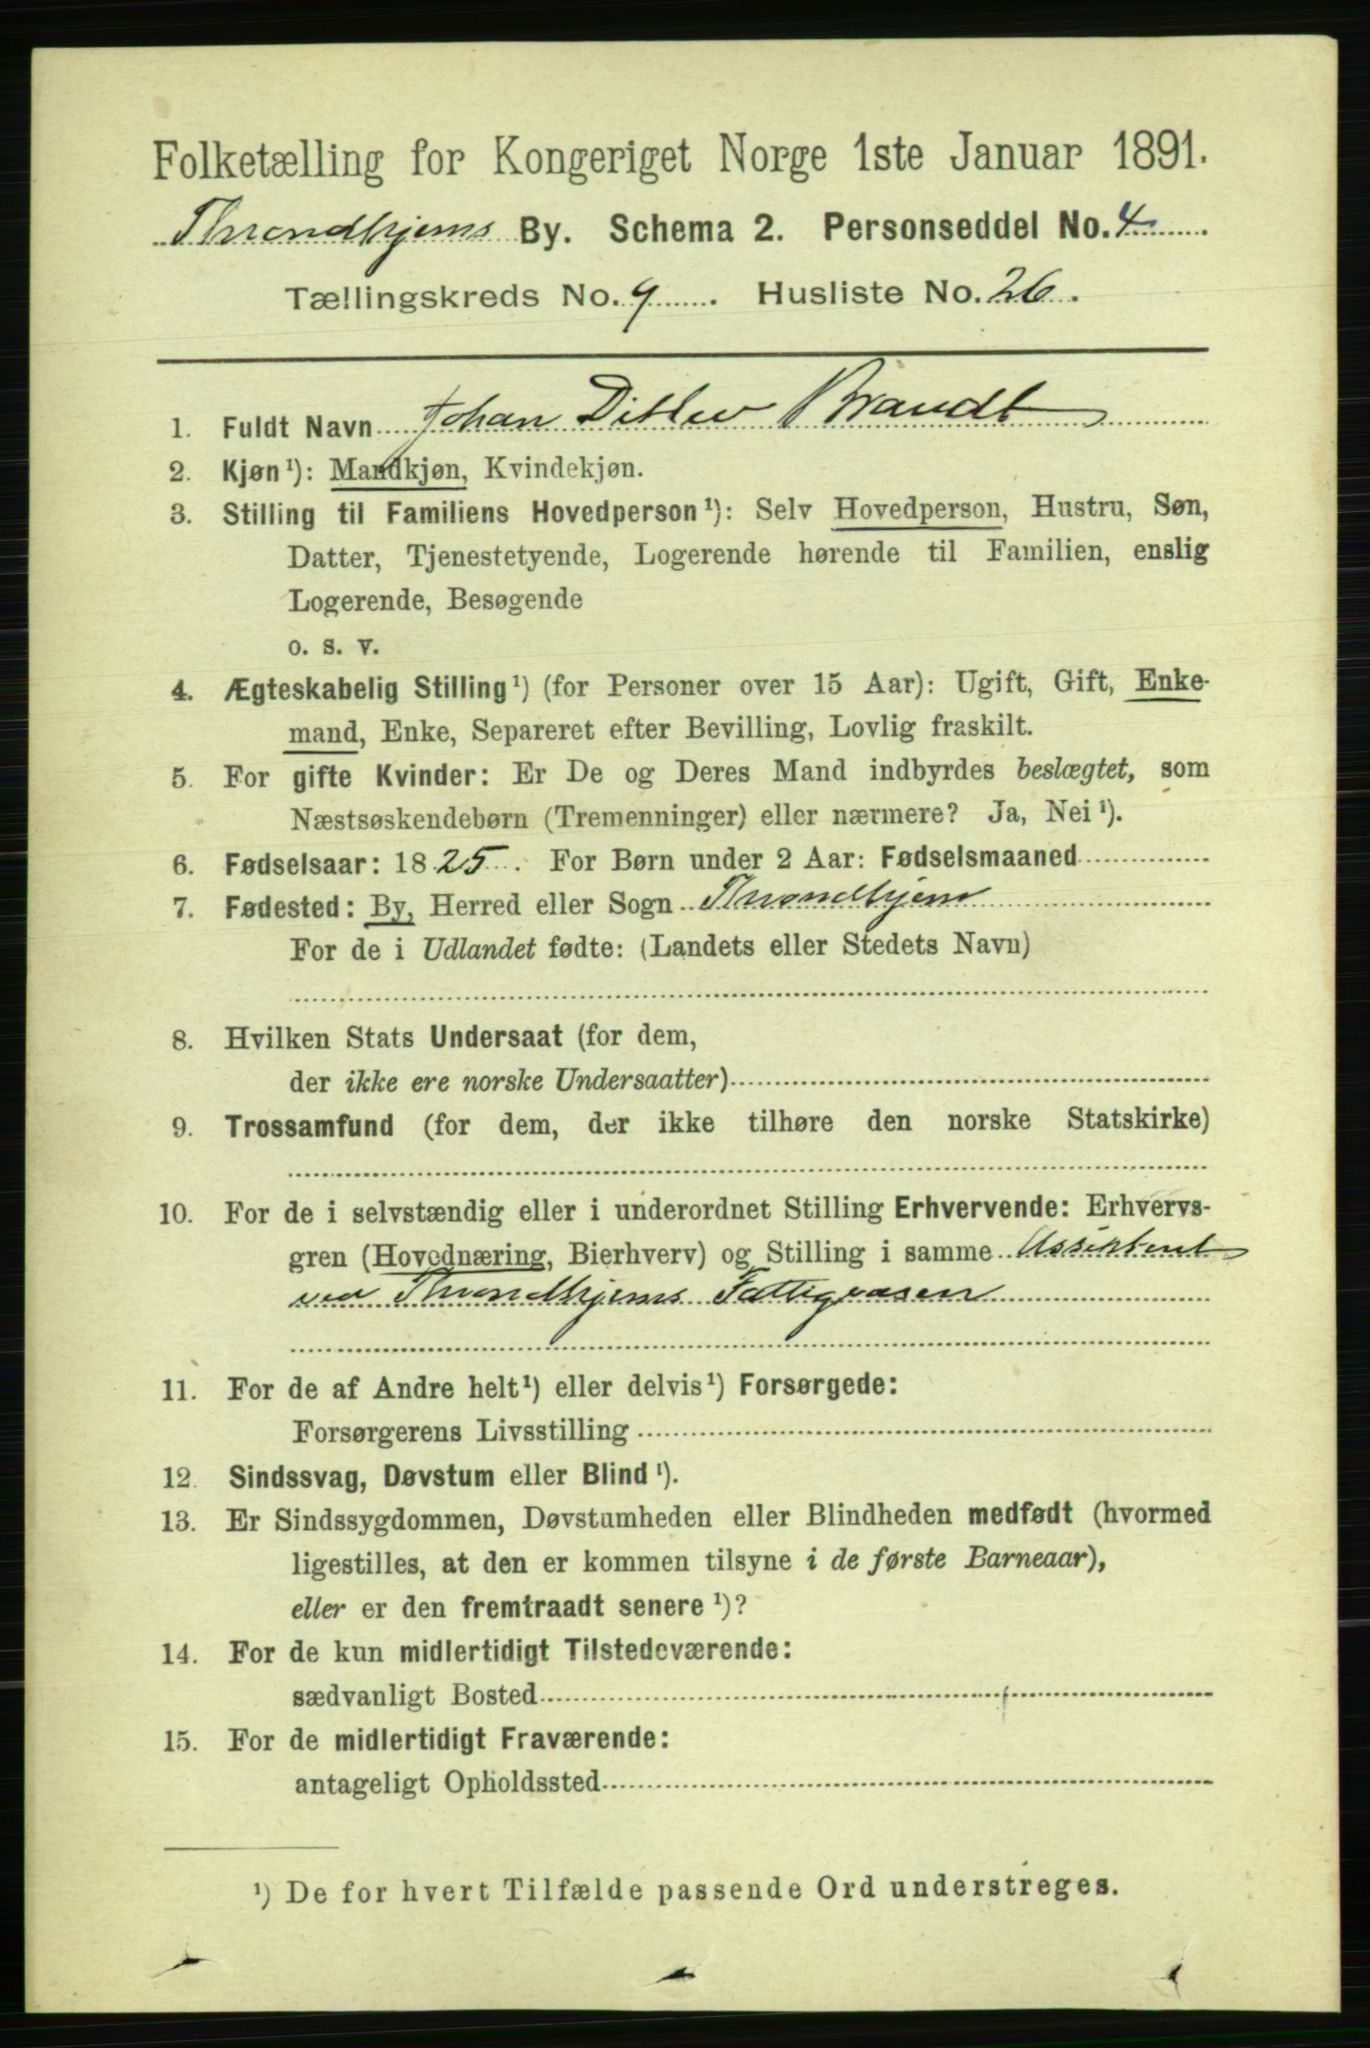 Folketælling for Kongeriget Norge 1ste Januar 1891.
Throndhjems By. Schema 2. Personseddel No. 4
Tællingskreds No. 9. Husliste No. 26.
1. Fuldt Navn Johan Ditlev Brandt
2. Kjøn¹): Mandkjøn, Kvindekjøn.
3. Stilling til Familiens Hovedperson¹): Selv Hovedperson, Hustru, Søn,
Datter, Tjenestetyende, Logerende hørende til Familien, enslig
Logerende, Besøgende
o. s. v.
4. Ægteskabelig Stilling¹) (for Personer over 15 Aar): Ugift, Gift, Enke-
mand, Enke, Separeret efter Bevilling, Lovlig fraskilt.
5. For gifte Kvinder: Er De og Deres Mand indbyrdes beslægtet, som
Næstsøskendebørn (Tremenninger) eller nærmere? Ja, Nei¹).
6. Fødselsaar: 1825. For Børn under 2 Aar: Fødselsmaaned
7. Fødested: By, Herred eller Sogn Throndhjem
For de i Udlandet fødte: (Landets eller Stedets Navn)
8. Hvilken Stats Undersaat (for dem,
der ikke ere norske Undersaatter)
9. Trossamfund (for dem, der ikke tilhøre den norske Statskirke)
10. For de i selvstændig eller i underordnet Stilling Erhvervende: Erhvervs-
gren (Hovednæring, Bierhverv) og Stilling i samme Assistent
ved Throndhjems Fattigvæsen
11. For de af Andre helt¹) eller delvis¹) Forsørgede:
Forsørgerens Livsstilling
12. Sindssvag, Døvstum eller Blind¹).
13. Er Sindssygdommen, Døvstumheden eller Blindheden medfødt (hvormed
ligestilles, at den er kommen tilsyne i de første Barneaar),
eller er den fremtraadt senere¹)?
14. For de kun midlertidigt Tilstedeværende:
sædvanligt Bosted
15. For de midlertidigt Fraværende:
antageligt Opholdssted
¹) De for hvert Tilfælde passende Ord understreges.